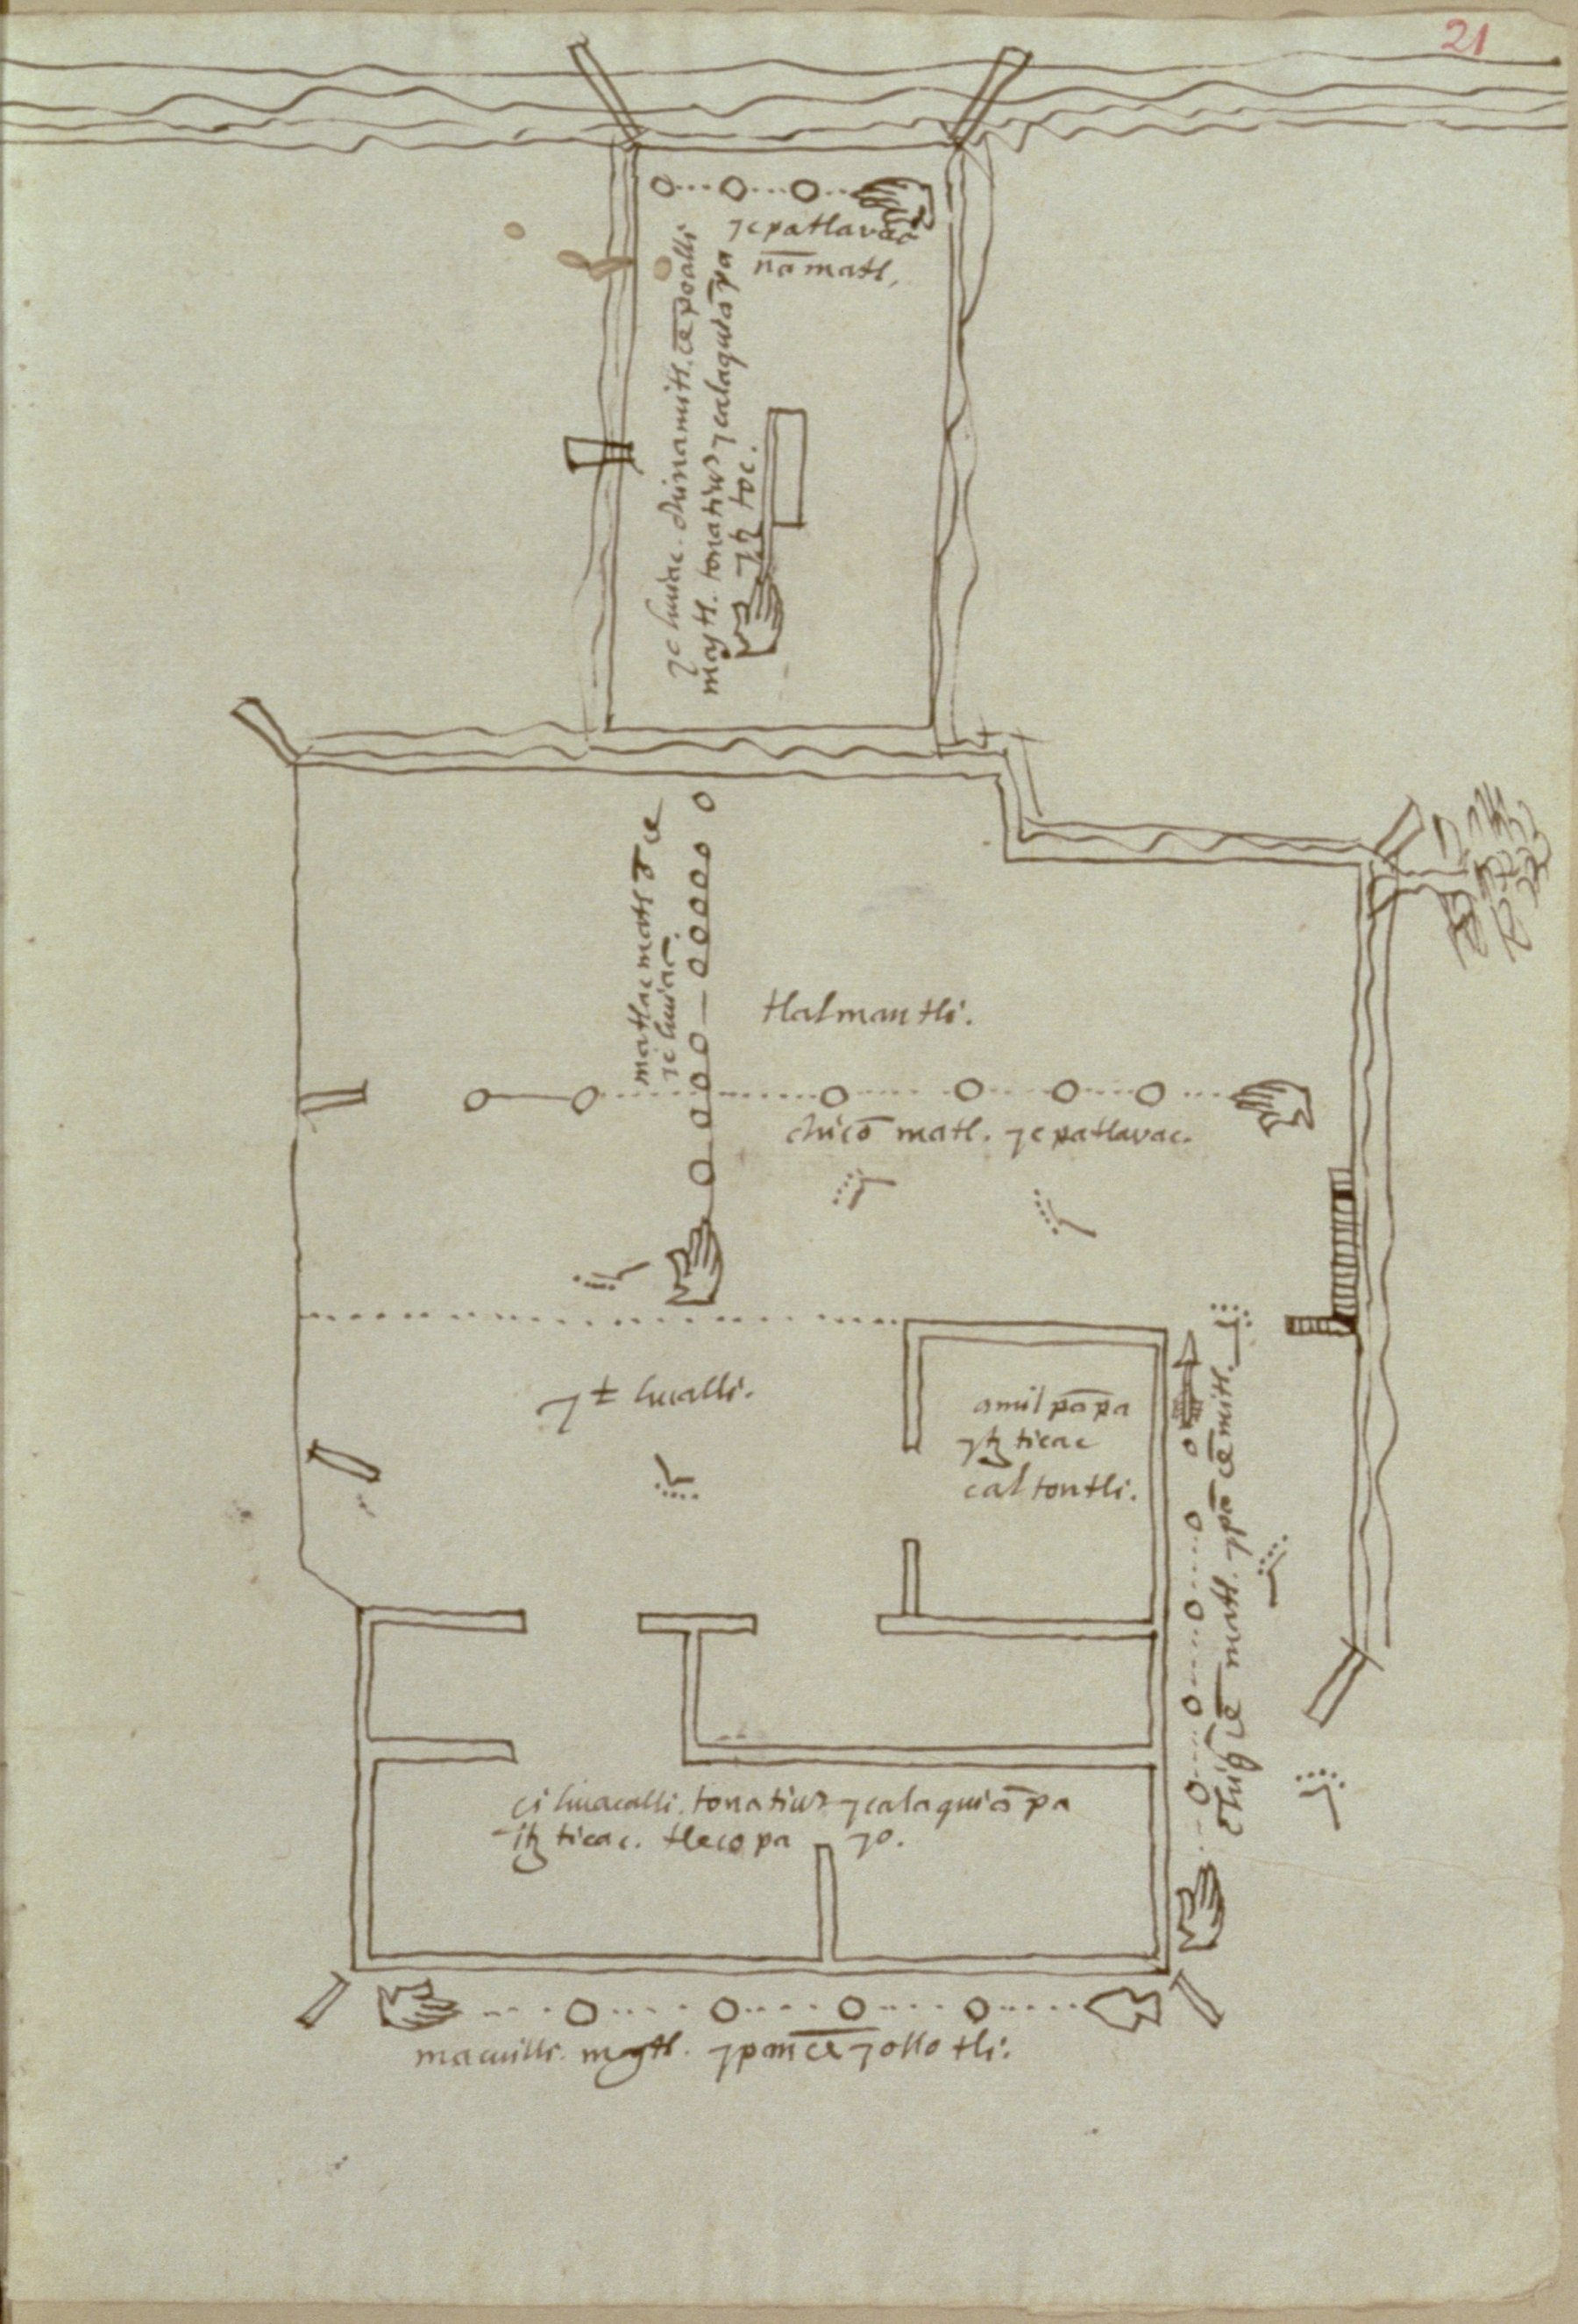 21
yc patlavac
nā matl,
yc huiac. chinamitl. cēpoalli
maytl. tonatiuh ycalaquiāpa
ytztoc.
matlacmatl ō ce
yc huiac
tlalmantli.
chicō matl. yc patlavac.
yt hualli.
amilpāpa
ytzticac
caltontli.
chiqūacē matl. ypā cē mitl.
cihuacalli. tonatiuh ycalaquiāpa
itzticac. tlecopa yo.
macuilli. maytl. ypan cē yollotli.